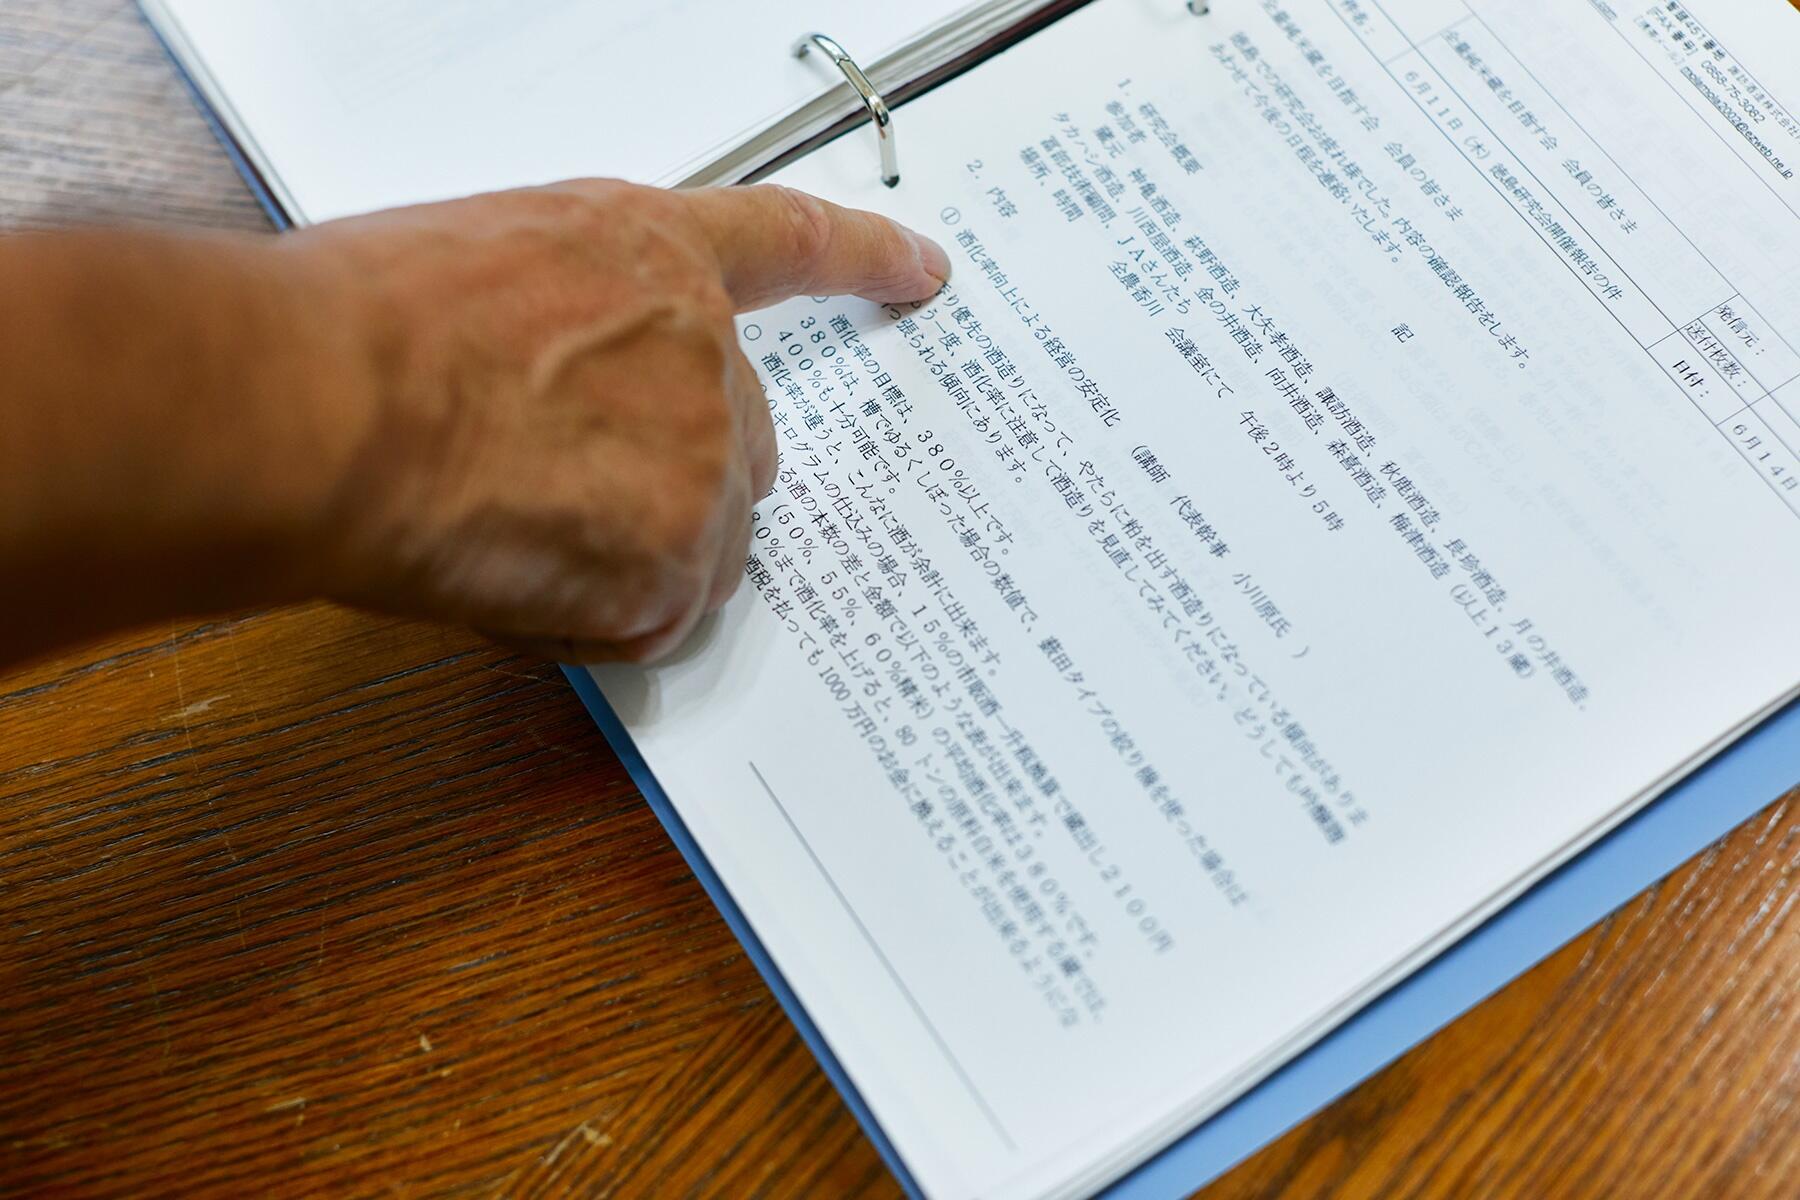 管理451番地 諏訪酒造株式会社
[FAX番号] 0858-75-3062
molamola2002@ezweb.ne.jp
件名:
全量純米蔵を目指す会 会員の皆さま
6月11日(木)徳島研究会開催報告の件
発信元:
送付枚数:
日付:
6月14日
全量純米蔵を目指す会 会員の皆さま
徳島での研究会お疲れ様でした。内容の確認報告をします。
あわせて今後の日程を連絡いたします。
記
1.研究会概要
参加者 神亀酒造、萩野酒造、大矢孝酒造、諏訪酒造、秋鹿酒造、長珍酒造、月の井酒造、
蔵元 川西屋酒造、金の井酒造、向井酒造、森喜酒造、梅津酒造(以上13蔵)
タカハシ酒造、
富部技術顧問、JAさんたち
場所、時間 全農香川 会議室にて 午後2時より5時
2.内容
① 酒化率向上による経営の安定化 (講師 代表幹事 小川原氏 )
り優先の酒造りになって、やたらに粕を出す酒造りになっている傾向がありま
う一度、酒化率に注意して酒造りを見直してみてください。どうしても吟醸酒
っ張られる傾向にあります。
○ 酒化率の目標は、380%以上です。
380%は、槽でゆるくしぼった場合の数値で、薮田タイプの絞り機を使った場合は
400%も十分可能です。
○ 酒化率が違うと、こんなに酒が余計に出来ます。
キログラムの仕込みの場合、15%の市販酒一升瓶換算で蔵出し2100円
る酒の本数の差と金額で以下のような表が出来ます。
(50%、55%、60%精米)の平均酒化率は380%です。
80%まで酒化率を上げると、80トンの原料白米を使用する蔵では、
酒税を払っても1000万円のお金に換えることが出来るようにな